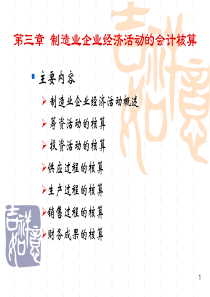 第三章 制造业企业经济活动的会计核算
主要内容
制造业企业经济活动概述
筹资活动的核算
投资活动的核算
供应过程的核算
生产过程的核算
销售过程的核算
财务成果的核算
吉祥如意
吉祥如意
1